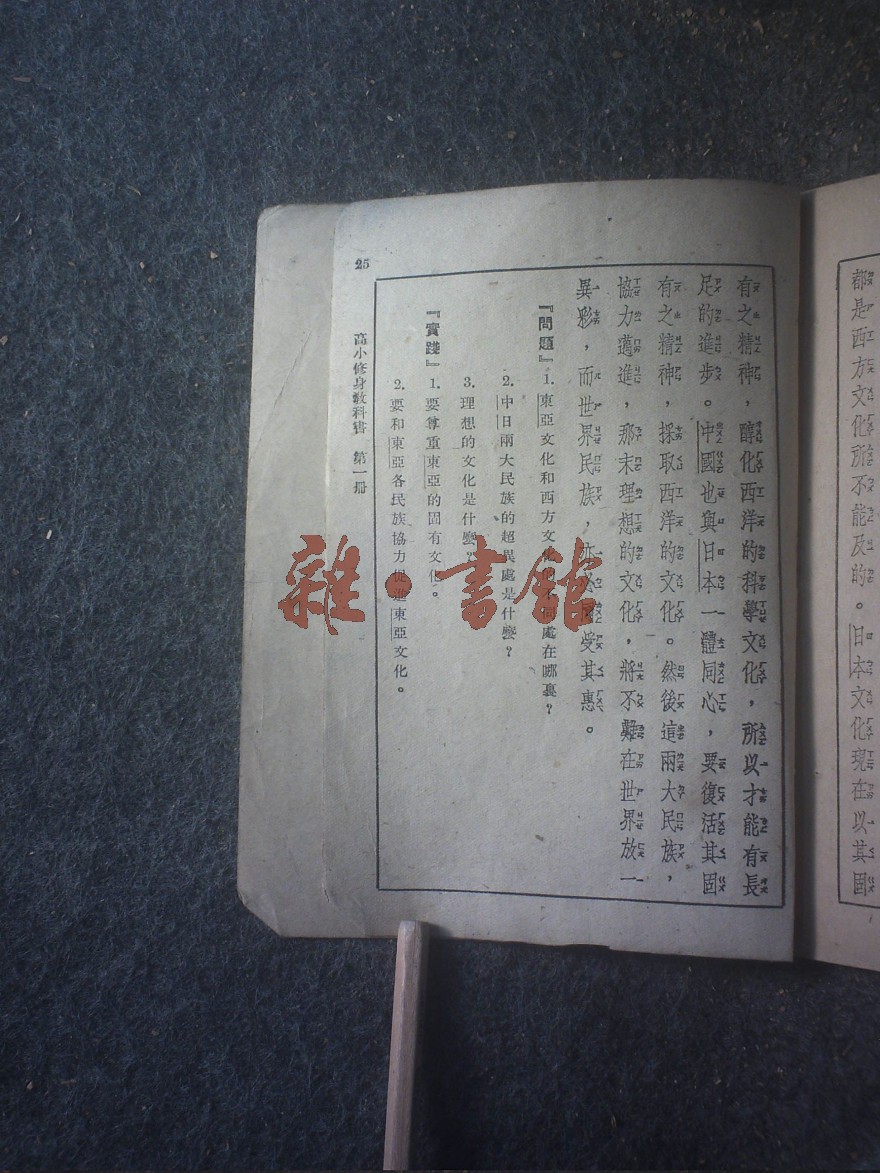 都是西方文化所不能及的。日本文化現在以其固
有之精神，醇化西洋的科學文化，所以才能有長
足的進步。中國也與日本一體同心，要復活其固
有之精神，採取西洋的文化。然後這兩大民族，
協力邁進，那末理想的文化，將不難在世界放一
異彩，而世界民族，亦受其惠。
『問題』1. 東亞文化和西方文處在哪裏？
2. 中日兩大民族的超異處是什麼？
3. 理想的文化是什麼？
『實踐』1. 要尊重東亞的固有文化。
2. 要和東亞各民族協力促進東亞文化。
高小修身教科書 第一冊
25
雜·書館